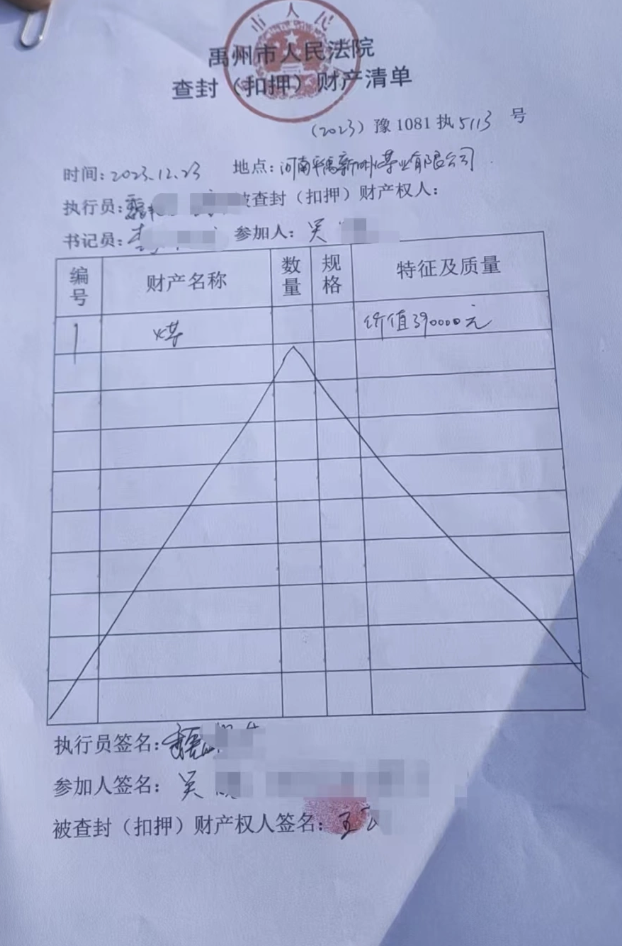 市人民
禹州市人民法院
查封（扣押）财产清单
（2023）豫1081执5113 号
时间：2023.12.23 地点：河南平禹新州煤业有限公司
执行员： 被查封（扣押）财产权人：
书记员：李 参加人：吴
编号 财产名称 数量 规格 特征及质量
1 煤 价值390000元
执行员签名：
参加人签名：吴
被查封（扣押）财产权人签名：王